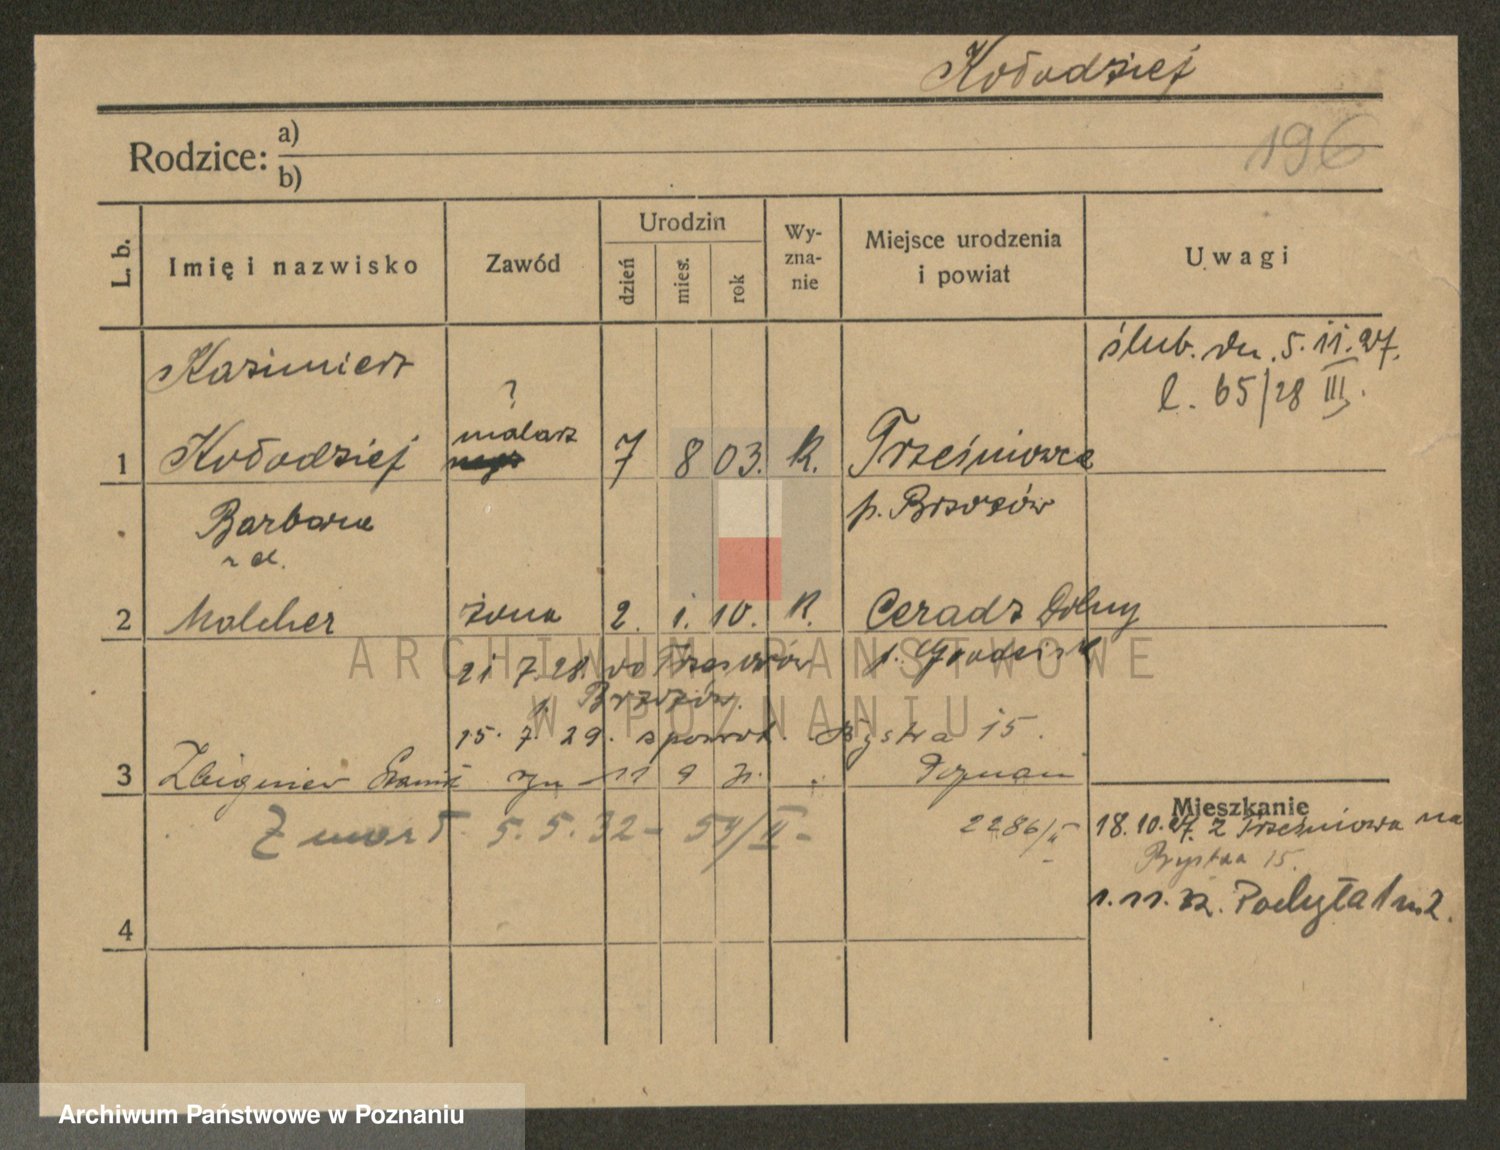 Kołodziej
196
Rodzice: a)
b)
L. b.
Imię i nazwisko
Zawód
Urodzin
dzień
mies.
rok
Wy-
zna-
nie
Miejsce urodzenia
i powiat
Uwagi
Kazimierz
?
ślub. dn. 5. 11. 27.
l. 65/28 III.
1 Kołodziej malarz 7 8 03. k. Trześniowce
p. Brzozów
Barbara
z d.
2 Malcher żona 2. 1. 10. k. Ceradz Dolny
p. Grodzisk
21 7. 28. do
p. Brzozów.
15. 7. 29. spowrot. Bystra 15.
3 Zbigniew syn 11 9 Poznań
Zmarł 5. 5. 32 - 54/II -
2286/II
Mieszkanie
18. 10. 27. z Trześniowa na
Bystra 15.
1. 11. 32. 1 m 2.
4
ARCHIWUM PAŃSTWOWE
W POZNANIU
Archiwum Państwowe w Poznaniu